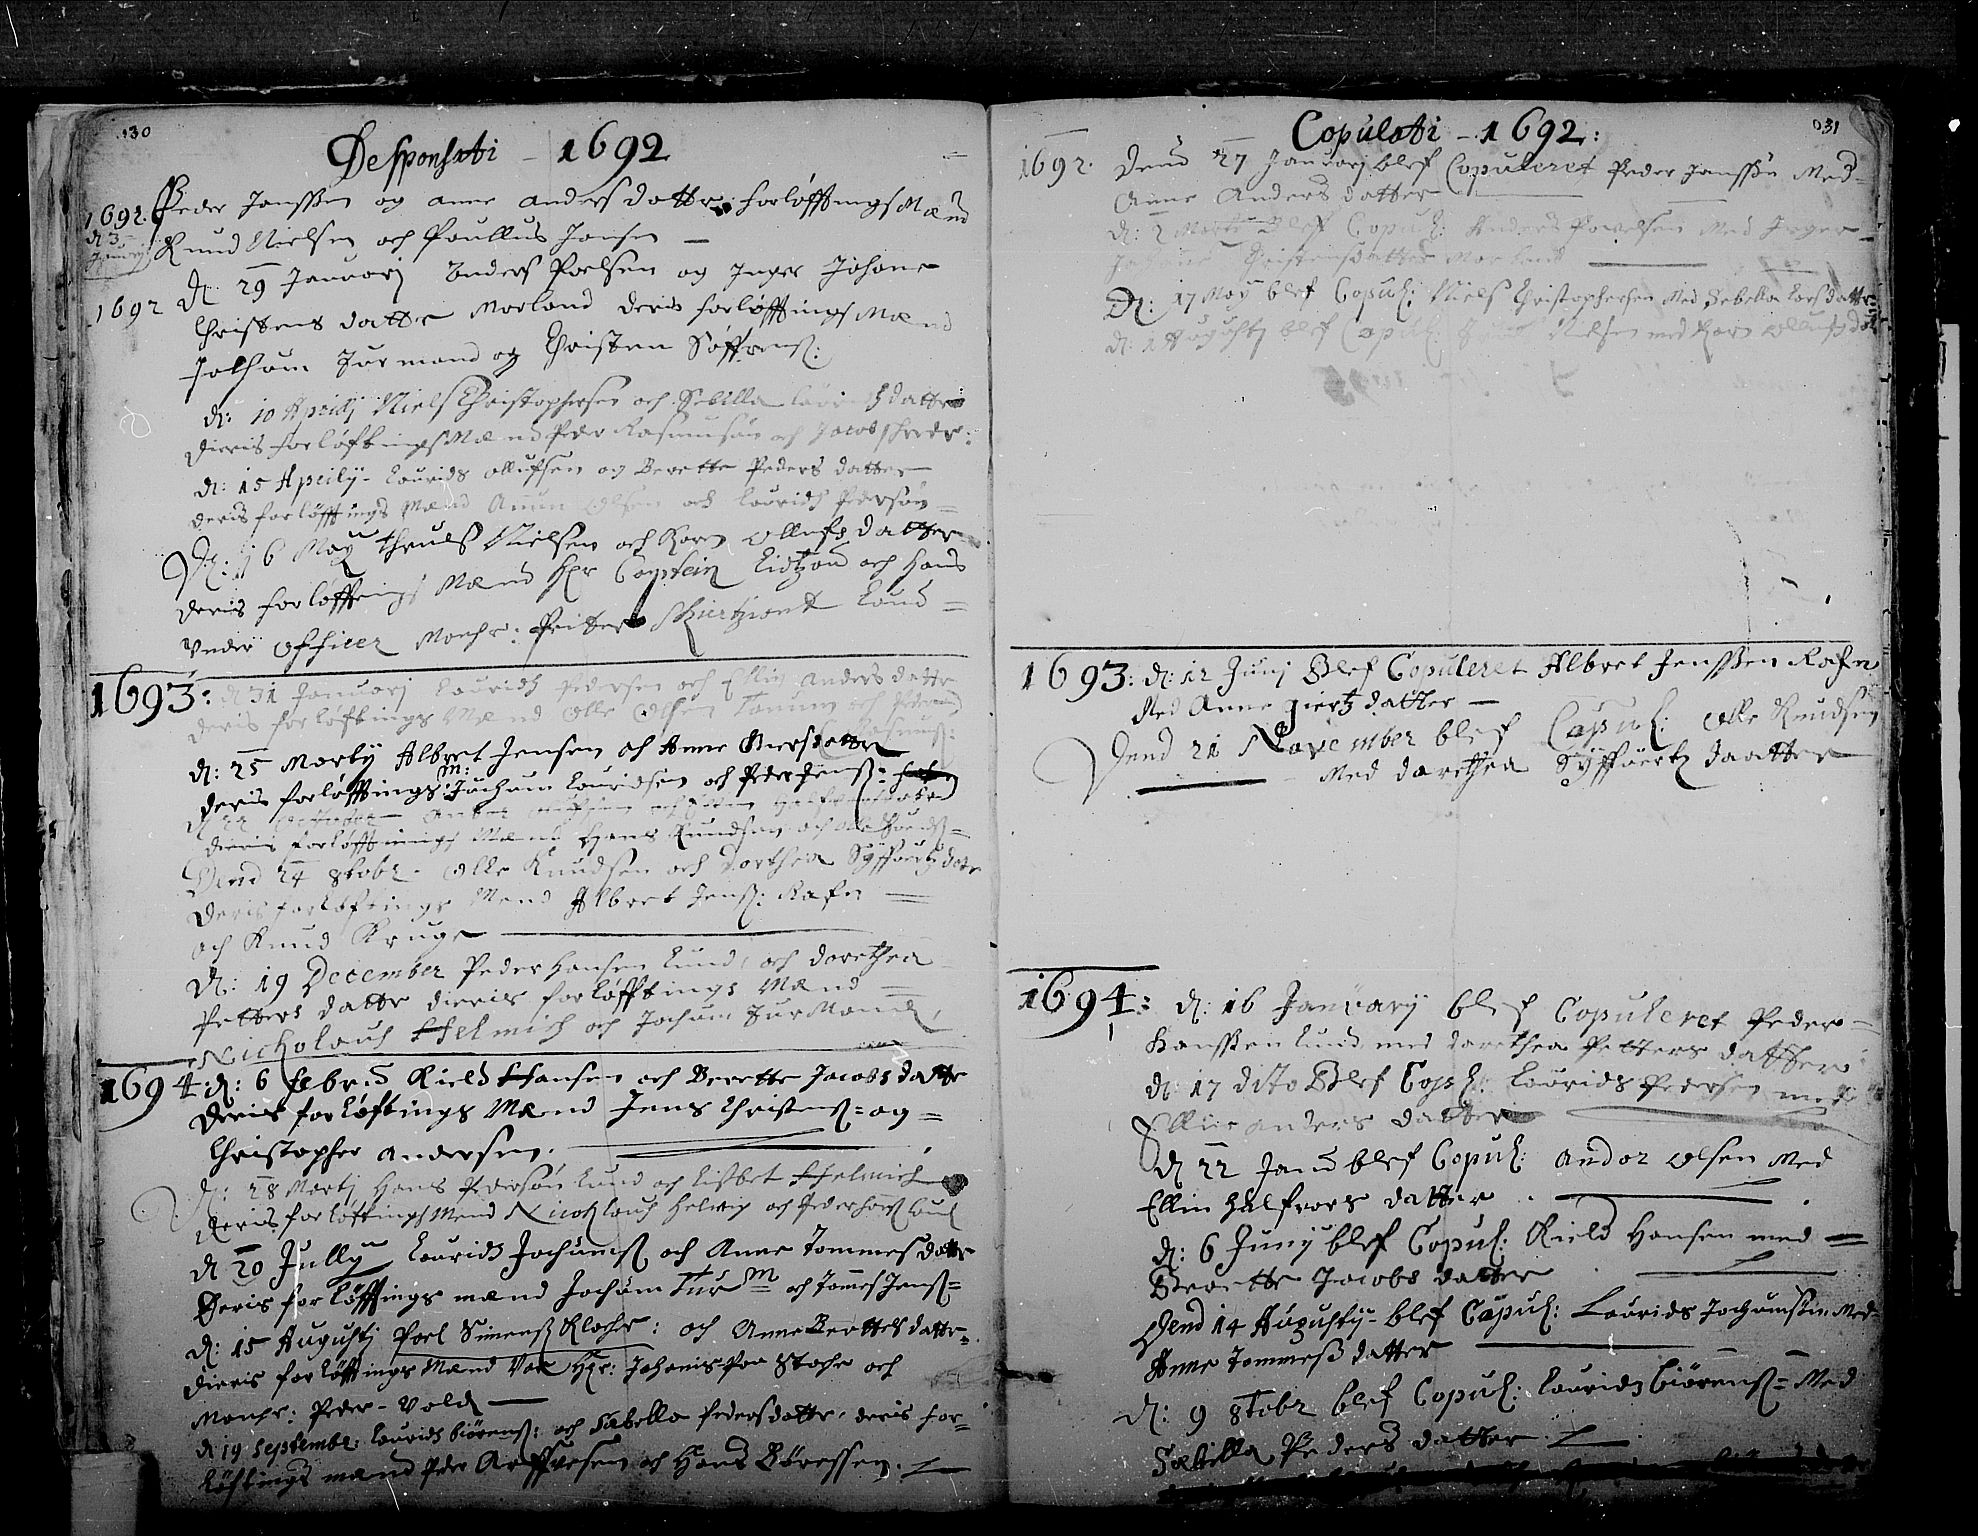 130
Desponsati - 1692
1692. Peder Jonssen og anne anders datter forløfftings Mænd
d: 3 Januarj Knud Nielsen och Poullus Jonsen —
1692 d: 29 Januarj Anders Poelsen og Inger Johane
Christens datter Morland deris forløfftings Mænd
Jochum Turmand og Christen Søffrens:
d: 10 Aprilj Niels Christophersen och Sebilla Lauridsdatter
dieris forløftings Mænd Peder Rasmusøn och Jacob
d: 15 Aprily - Laurids ollufsen og Berette Peders datter
deris forløfftings Mænd Olsen och Lauridz Pedersøn
D: 16 May Thruls Nielsen och Karn ollufs datter
deris forløfftings Mænd Hr Captein och Hans
Under officer Monsr: Peitter Lund =
1693: d 31 Januarj Lauridz Pedersen och Ellin Anders datter
deris forløftings Mænd Olle Olsen och
Rasmus:
d: 25 Martij Albret Jensen och Anne Giersdatter
deris forløfftings M: Jochum Lauridsen och Peder Jenss:
d 22
dieris forløfftnings Mænd Hans Knudsen och
Dend 24 8tobr. Olle Knudsen och Dorthea Syffuertz datr
Deris forløftings Mend Albret Jens: Rafn =
och Knud Kruge —
D: 19 December Peder Hansen Lund, och dorethea
Petters datter dieris forløfftings Mænd =
Nickolaus Helmich och Jochum Turmand,
1694: d: 6 febru Kield Hansen och Berette Jacobs datter
deris forløftings Mænd Jens Christens= og =
Christopher Andersen.
D: 28 Martj Hans Pedersøn Lund och Lisbet Helmich
deris forløftings Mend Nicolaus Helmig och Peder Hans Lund
d 20 Jully Lauridz Jochums och Anne Tommes datter
Deris forløfftings mænd Jochum Turm och Tomes Jens=
d: 15 Augustj Poel Simens Klocher: och Anne Berttels datter=
dieris forløfftings Mænd Var Hr: Johanis Poe och
Monsr: Peder - Vold —
d 19 September: Lauridz Biørens: och Sabella Pedersdatter. deris for=
løftings mænd Peder Arffuesen och Hans Børessen.
031
Copulati - 1692:
1692. Dend 27 Januarj blef Copuleret Peder Jonssen Med
Anne Anders datter
d: 2 Martii Blef Copul: Anders Powelsen Med Inger
Johane Christensdatter Morland
D: 17 May blef Copul: Niels Christophersen Med Sebella Larsdatter
d: 1 Augustj blef Copul: Nielsen med Karn Ollufsda
1693: d: 12 Junj Blef Copuleret Albret Jenssen Rafn
Med Anne giertz datter —
Dend 21 November blef Copul: Olle Knudsen
Med dorethea Syffuertz daatter
1694: d: 16 Januarij blef Copuleret Peder=
Hanssen Lund med dorethea Petters datther
d: 17 dito Blef Copl: Laurids Pedersen med
Ellin anders datter
d 22 Janu blef Copul: Andor Olsen Med
Ellin Halfvors datter.
d: 6 Junij blef Copul: Kield Hansen med =
Berette Jacobs datter
Dend 14 Augustij- blef Copul: Laurids Jochumsen Med
Anne Tommess datter
D: 9 8tobr blef Copul: Lauridz Biørens= Med
Sebilla Peders datter.